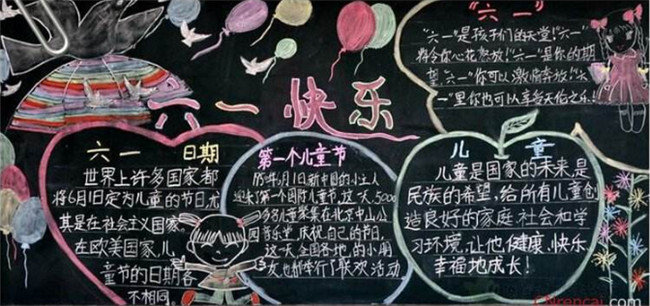 六一快乐
"六一"
"六一"是孩子们的天堂!"六一"
将令你心花怒放!"六一"是你的期
望"六一"你可以激情奔放"六
一"里你也可以享受天伦之乐!
六一 日期
世界上许多国家都
将6月1日定为儿童的节日,尤
其是在社会主义国家。
在欧美国家,儿
童节的日期各
不相同。
第一个儿童节
年6月1日新中国的小主人
迎来了第一个国际儿童节,这一天,5000
多名儿童聚集在北京中山公
园音乐堂庆祝自己的节日。
这一天全国各地的小朋
友也都举行了联欢活动
儿童
儿童是国家的未来,是
民族的希望,给所有儿童创
造良好的家庭、社会和学
习环境,让他们健康、快乐、
幸福地成长!